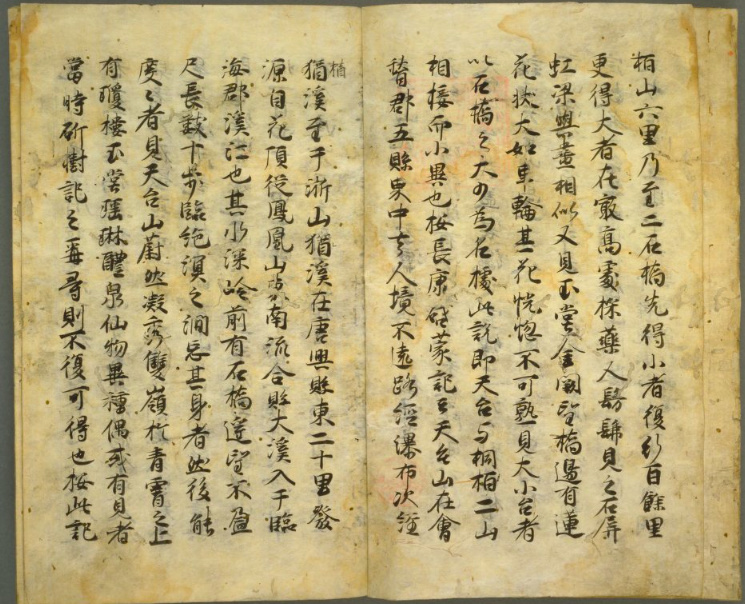 栢山六里乃至二石橋先得小者復行百餘里
更得大者在㝡高處採藥人髣髴見之石屏
虹梁與畫相似又見玉堂金闕望橋邊有蓮
花狀大如車輪其花恍惚不可熟見大小台者
以石橋之大小為名據此說即天台与桐柏二山
相接而小異也按長康啓蒙記云天台山在會
稽郡五縣界中去人境不遠路經瀑布次經
楢
猶溪至于浙山猶溪在唐興縣東二十里發
源自花頂從鳳凰山東南流合縣大溪入于臨
海郡溪江也其水深冷前有石橋遙望不盈
尺長數十步臨絕溟之澗忘其身者然後能
度之者見天台山蔚然凝秀雙嶺於青霄之上
有瓊樓玉堂瑤琳醴泉仙物異種偶或有見者
當時斫樹記之再尋則不復可得也按此記